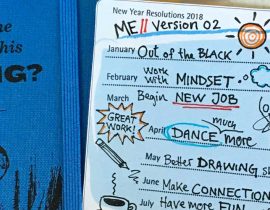 ne
his
NG?
New Year Resolutions 2018
ME II Version 02
January Out of the BLACK!
Work
February with MINDSET
March Begin NEW JOB
GREAT
WORK!
much
April DANCE more
May Better DRAWING
June Make CONNECTION
July Have more FUN